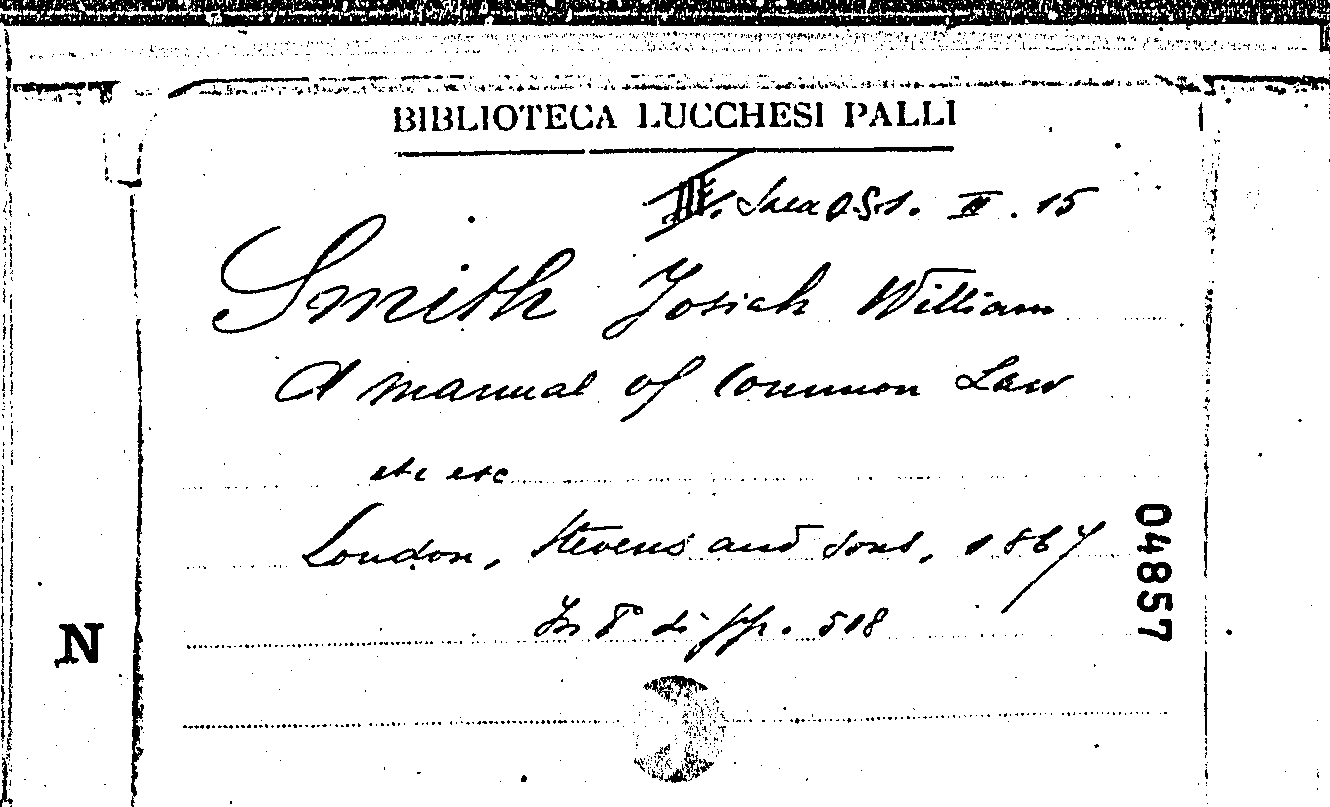 BIBLIOTECA LUCCHESI PALLI
II. 15
Smith Josiah William
A manual of Common Law
etc etc
London, Stevens and Sons, 1867
In 8° di pp. 518
04857
N